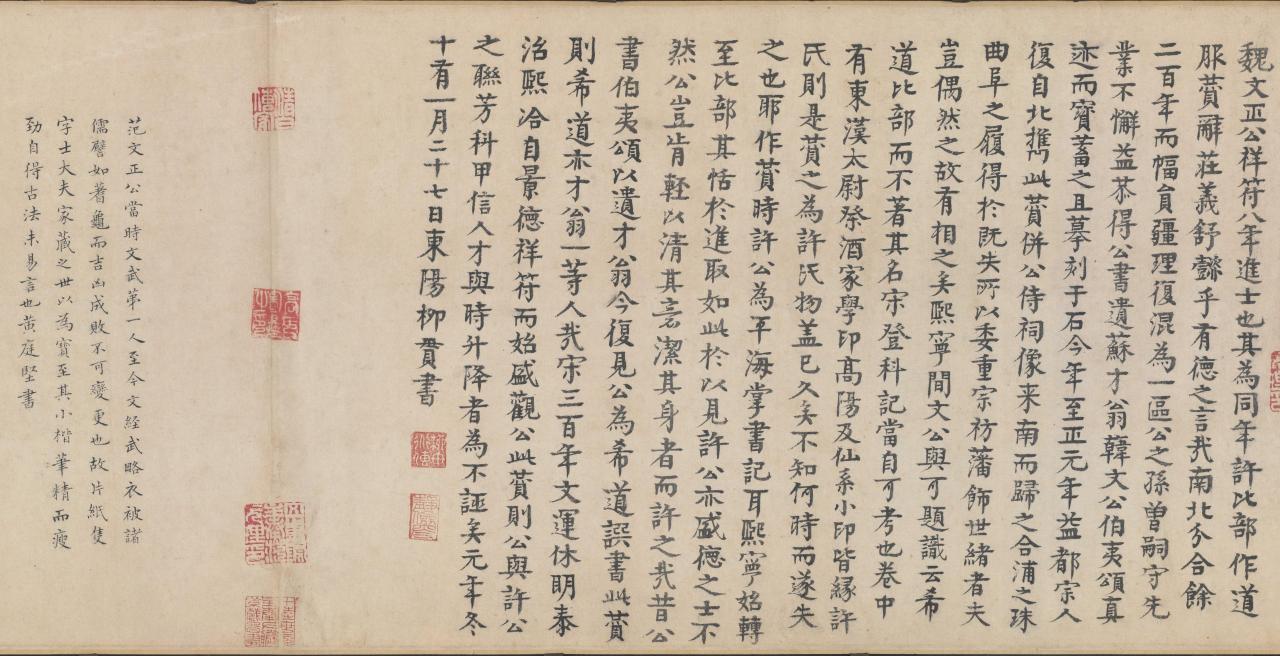 魏文正公祥符八年進士也其為同年許比部作道
服贊辭莊義舒懿乎有德之言哉南北分合餘
二百年而幅員疆理復混為一區公之孫曾嗣守先
業不懈益恭得公書遺蘇才翁韓文公伯夷頌真
迹而寶蓄之且摹刻于石今年至正元年益都宗人
復自北携此贊併公侍祠像来南而歸之合浦之珠
曲阜之履得於既失所以委重宗祊藩飾世緒者夫
豈偶然之故有相之矣熙寧間文公與可題識云希
道比部而不著其名宋登科記當自可考也卷中
有東漢太尉祭酒家學印高陽及仙系小印皆緣許
氏則是贊之為許氏物蓋已久矣不知何時而遂失
之也耶作贊時許公為平海掌書記耳熙寧始轉
至比部其恬於進取如此於以見許公亦盛德之士不
然公豈肯輕以清其言潔其身者而許之哉昔公
書伯夷頌以遺才翁今復見公為希道譔書此贊
則希道亦才翁一等人哉宋三百年文運休明泰
治熙洽自景德祥符而始盛觀公此贊則公與許公
之聯芳科甲信人才與時升降者為不誣矣元年冬
十有一月二十七日東陽柳貫書
范文正公當時文武第一人至今文経武略衣被諸
儒譬如蓍龜而吉凶成敗不可變更也故片紙隻
字士大夫家藏之世以為寶至其小楷筆精而瘦
勁自得古法未易言也黄庭堅書